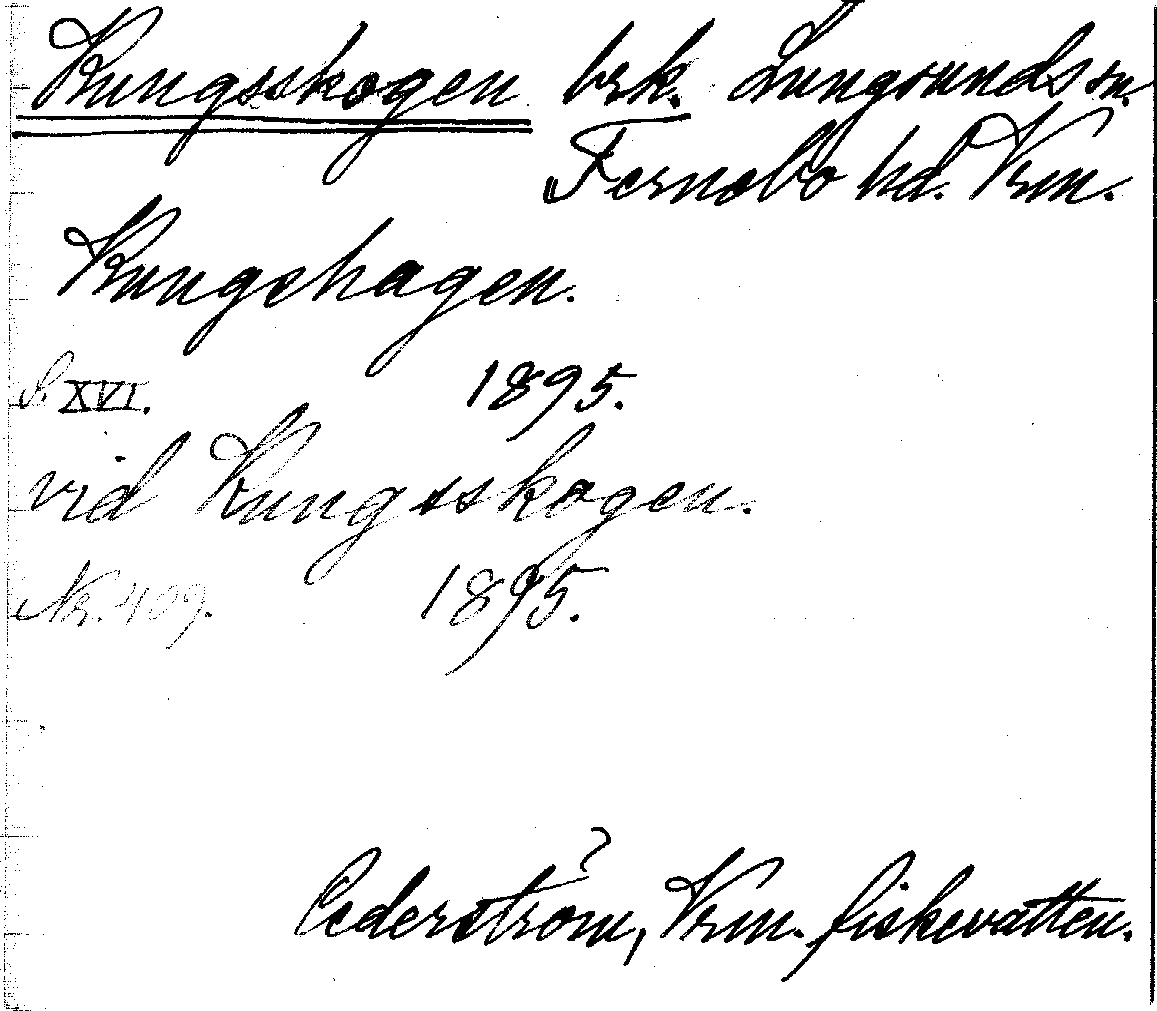 Kungsskogen brk. Lungsunds sn.
Fernebo hd. Vrm.
Kungshagen.
S. XVI. 1895.
vid Kungsskogen.
Nr. 409. 1895.
?
Cederström, Vrm. fiskevatten.